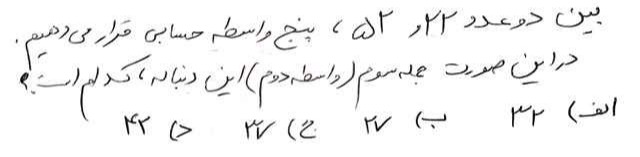 بین دو عدد ۲۲ و ۵۲، پنج واسطه حسابی قرار می دهیم.
در این صورت جمله سوم (واسطه دوم) این دنباله، کدام است؟
الف) ۳۲ ب) ۲۷ ج) ۳۷ د) ۴۲